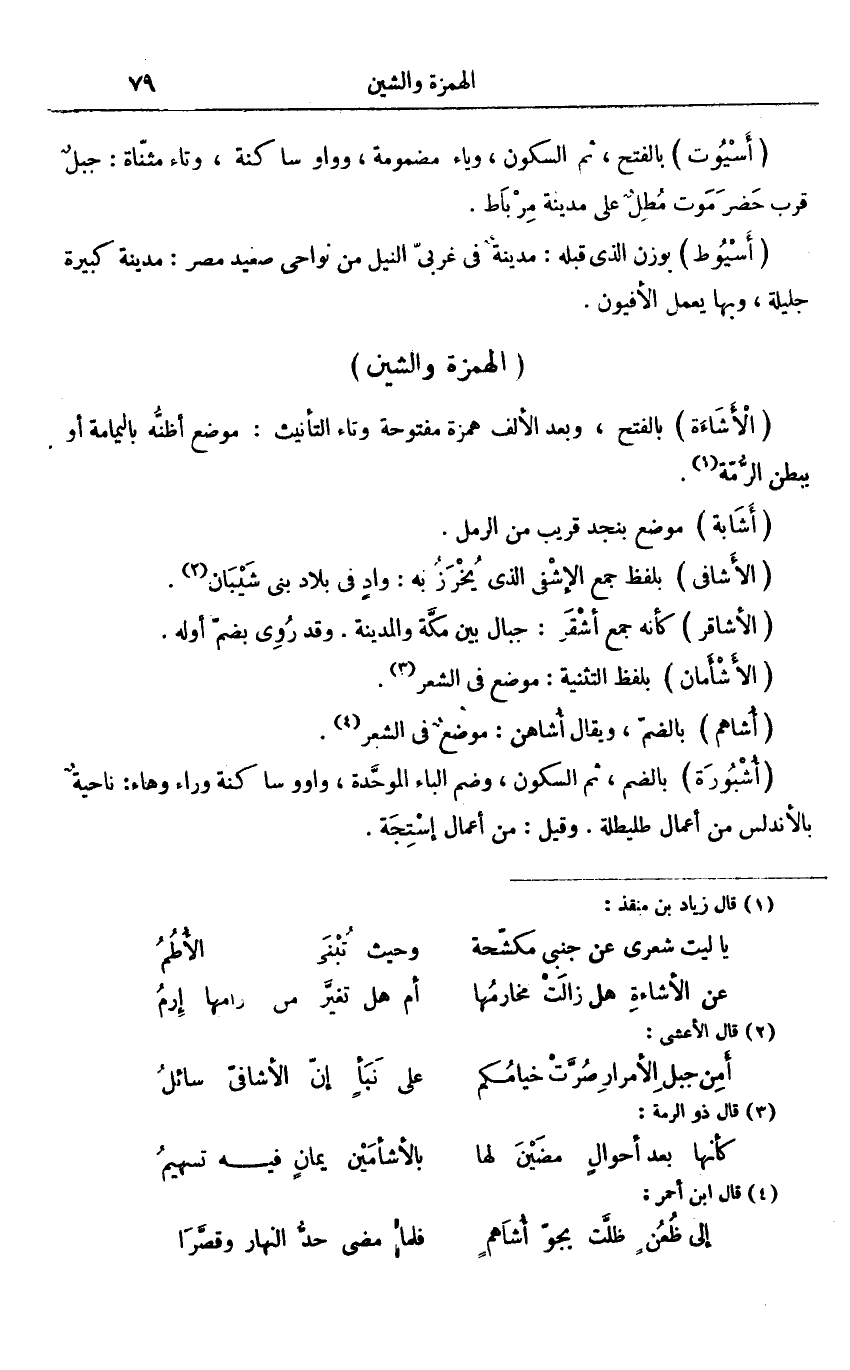 الهمزة والشين ٧٩
( أَسْيُوت ) بالفتح ، ثم السكون ، وياء مضمومة ، وواو ساكنة ، وتاء مثنّاة : جبلٌ
قرب حَضرَمَوت مُطِلٌّ على مدينة مِرْبَاط .
( أَسْيُوط ) بوزن الذى قبله : مدينةٌ فى غربىّ النيل من نواحى صعيد مصر : مدينة كبيرة
جليلة ، وبها يعمل الأفيون .
( الهمزة والشين )
( الْأَشَاءَة ) بالفتح ، وبعد الألف همزة مفتوحة وتاء التأنيث : موضع أظنُّه باليمامة أو
ببطن الرُّمّة(١) .
( أَشَابة ) موضع بنجد قريب من الرمل .
( الأَشافى ) بلفظ جمع الإشْفى الذى يُخْرَزُ به : وادٍ فى بلاد بنى شَيْبَان(٢) .
( الأشاقر ) كأنه جمع أشْقَرَ : جبال بين مكَّة والمدينة . وقد رُوِى بضمّ أوله .
( الأَشْأَمان ) بلفظ التثنية : موضع فى الشعر(٣) .
( أُشاهم ) بالضمّ ، ويقال أُشاهن : موضعٌ فى الشعر(٤) .
( أُشْبُورَة ) بالضم ، ثم السكون ، وضم الباء الموحَّدة ، واوو ساكنة وراء وهاء: ناحيةٌ
بالأندلس من أعمال طليطلة . وقيل : من أعمال إسْتِجَة .
(١) قال زياد بن منقذ :
يا ليت شعرى عن جنبى مكشّحة وحيث تُبْنَى الأُطُمُ
عن الأشاءةِ هل زالَتْ مخارمُها أم هل تغيَّر من رامها إرمُ
(٢) قال الأعشى :
أَمِن جبلِ الأمرارِ صُرَّتْ خيامُكم على نَبَأٍ إنّ الأشافىّ سائلُ
(٣) قال ذو الرمة :
كأنها بعد أحوالٍ مضَيْنَ لها بالأشأمَيْن يمانٍ فيه تسهيمُ
(٤) قال ابن أحمر :
إلى ظُعُنٍ ظلَّت بجوّ أُشاَهمٍ فلما مضى حدُّ النهار وقصَّرَا